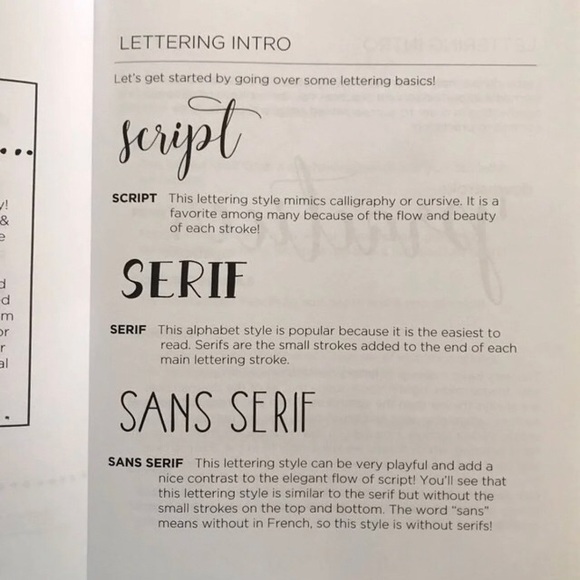 LETTERING INTRO
Let's get started by going over some lettering basics!
script
SCRIPT This lettering style mimics calligraphy or cursive. It is a
favorite among many because of the flow and beauty
of each stroke!
SERIF
SERIF This alphabet style is popular because it is the easiest to
read. Serifs are the small strokes added to the end of each
main lettering stroke.
SANS SERIF
SANS SERIF This lettering style can be very playful and add a
nice contrast to the elegant flow of script! You'll see that
this lettering style is similar to the serif but without the
small strokes on the top and bottom. The word "sans"
means without in French, so this style is without serifs!